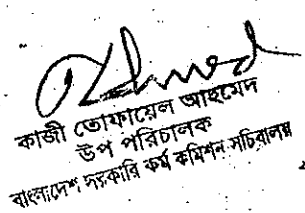 কাজী তোফায়েল আহমেদ
উপ পরিচালক
বাংলাদেশ সরকারি কর্ম কমিশন সচিবালয়